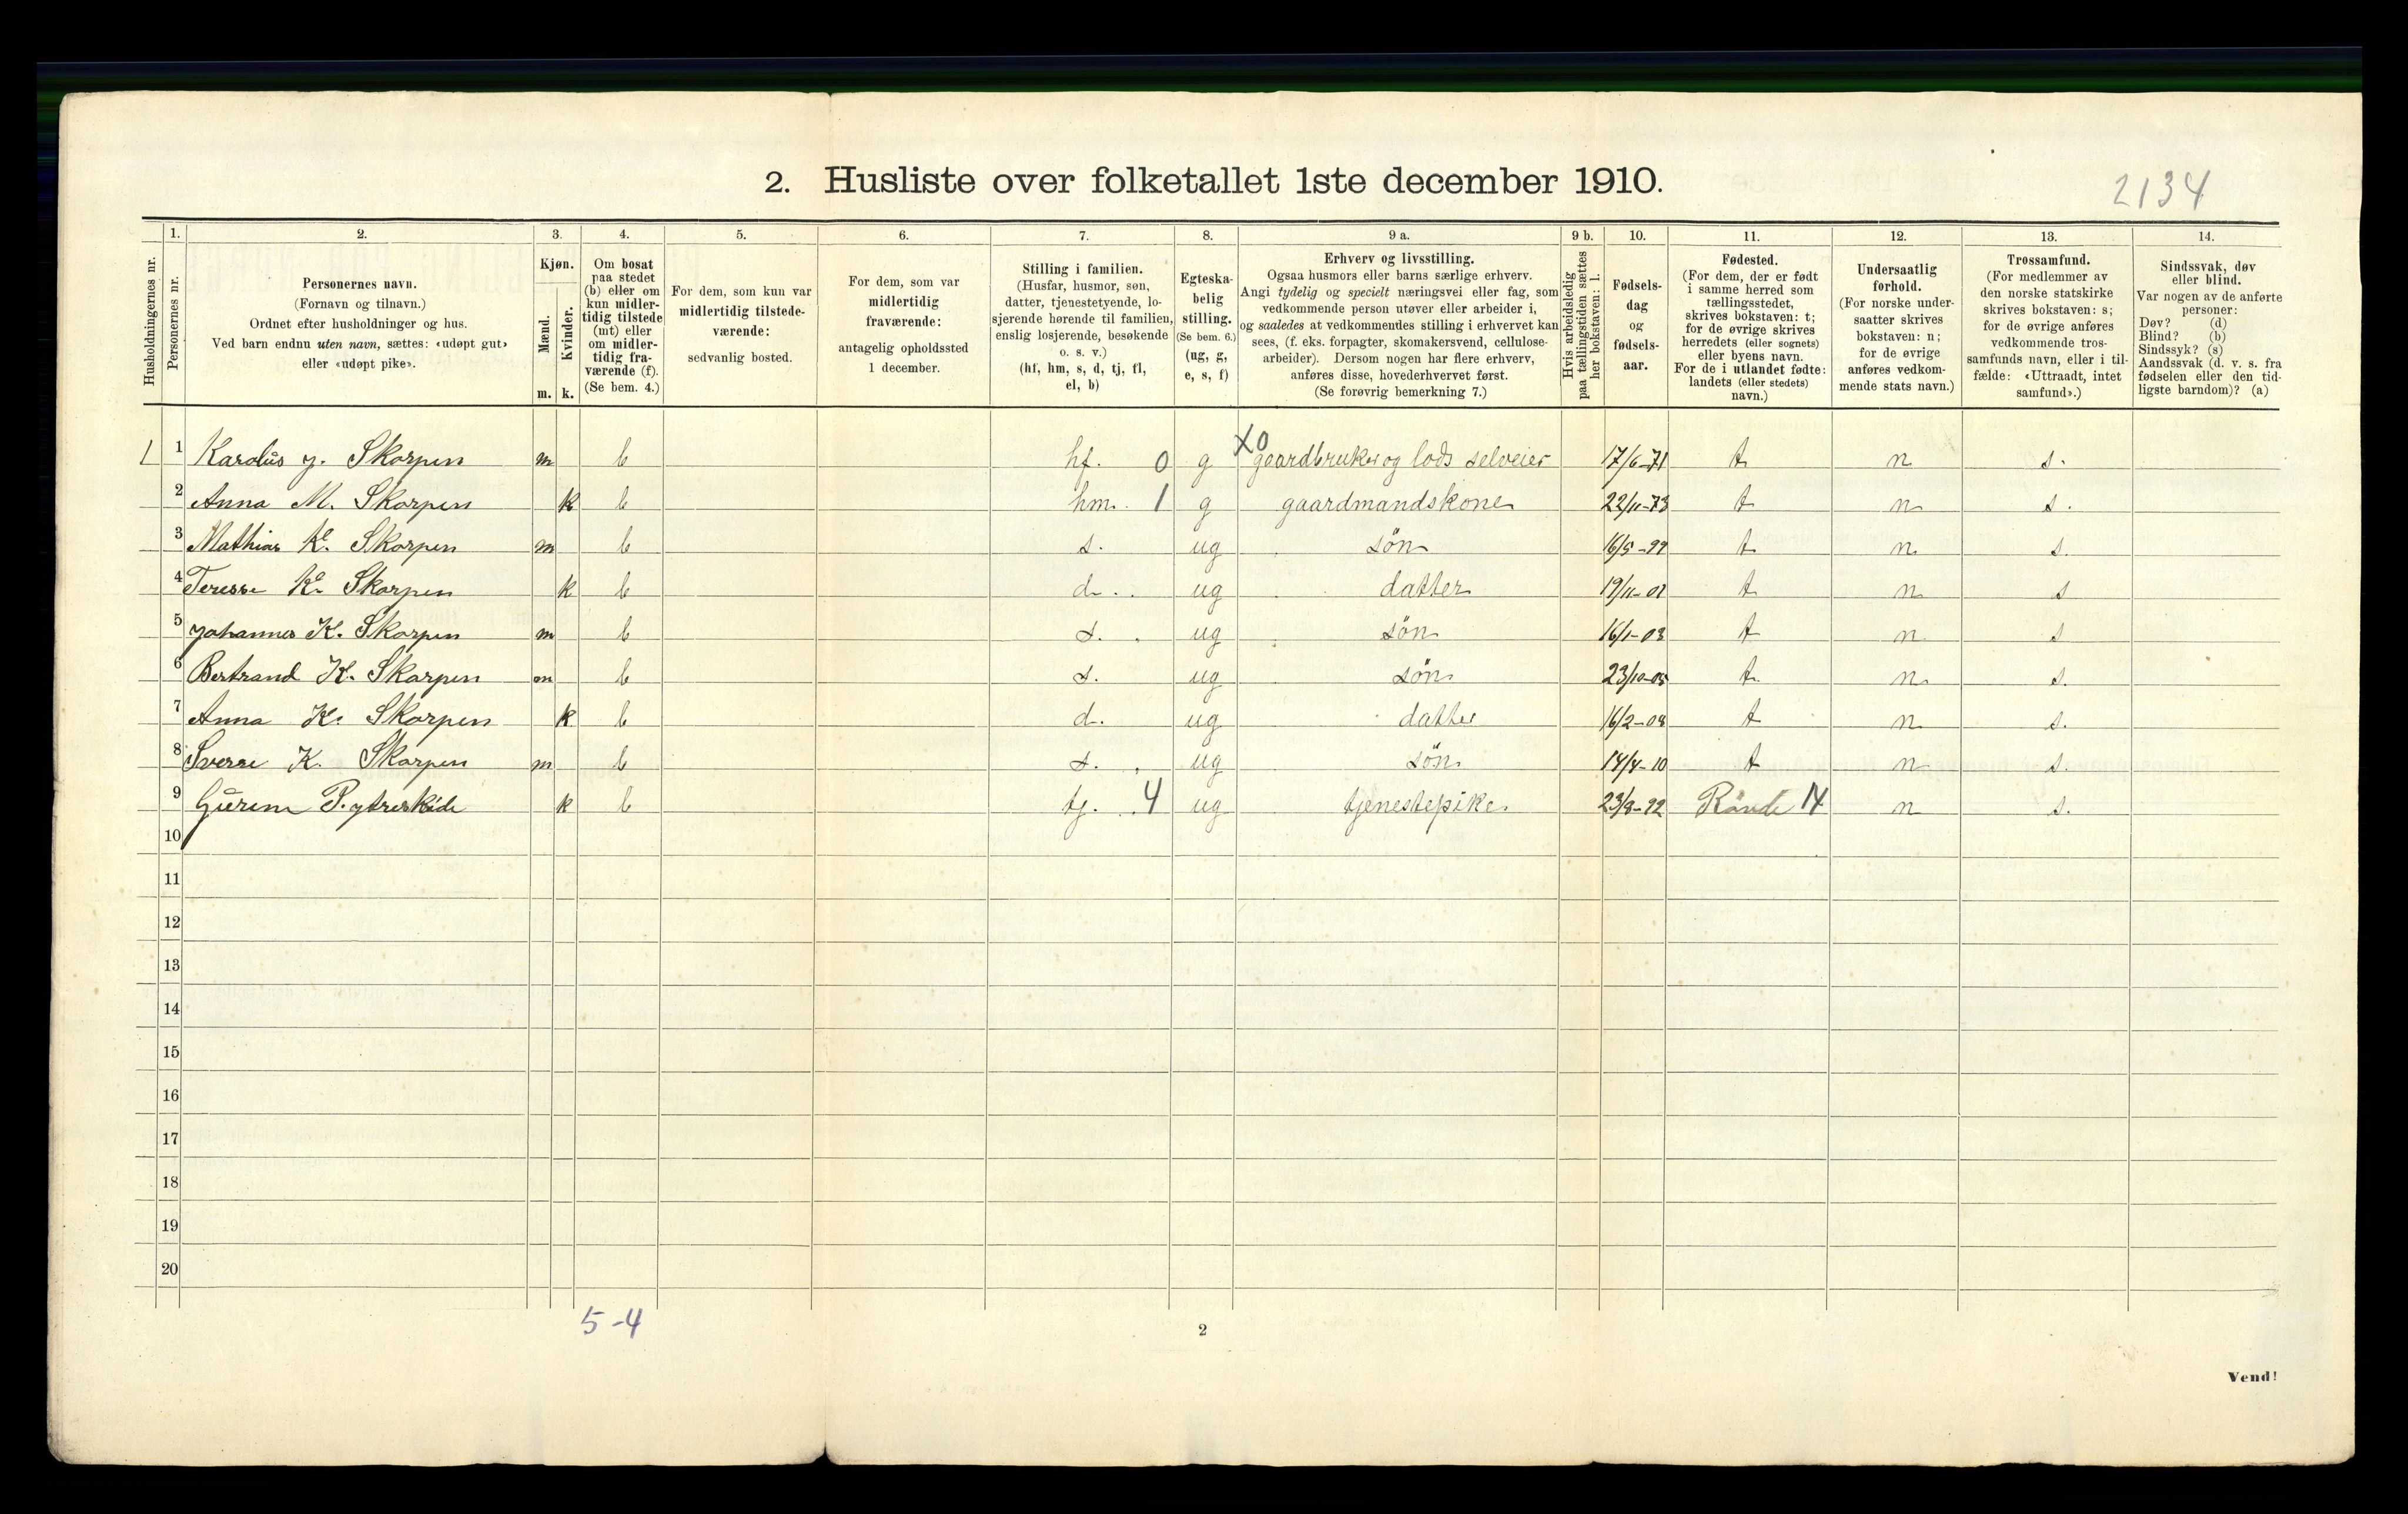 2. Husliste over folketallet 1ste december 1910.
2134
1. 2. 3. 4. 5. 6. 7. 8. 9 a. 9 b. 10. 11. 12. 13. 14.
Husholdningernes nr.
Personernes nr.
Personernes navn.
(Fornavn og tilnavn.)
Ordnet efter husholdninger og hus.
Ved barn endnu uten navn, sættes: «udøpt gut»
eller «udøpt pike».
Kjøn.
Mænd.
Kvinder.
m. k.
Om bosat
paa stedet
(b) eller om
kun midler-
tidig tilstede
(mt) eller
om midler-
tidig fra-
værende (f).
(Se bem. 4.)
For dem, som kun var
midlertidig tilstede-
værende:
sedvanlig bosted.
For dem, som var
midlertidig
fraværende:
antagelig opholdssted
1 december.
Stilling i familien.
(Husfar, husmor, søn,
datter, tjenestetyende, lo-
sjerende hørende til familien,
enslig losjerende, besøkende
o. s. v.)
(hf, hm, s, d, tj, fl,
el, b)
Egteska-
belig
stilling.
(Se bem. 6.)
(ug, g,
e, s, f)
Erhverv og livsstilling.
Ogsaa husmors eller barns særlige erhverv.
Angi tydelig og specielt næringsvei eller fag, som
vedkommende person utøver eller arbeider i,
og saaledes at vedkommendes stilling i erhvervet kan
sees, (f. eks. forpagter, skomakersvend, cellulose-
arbeider). Dersom nogen har flere erhverv,
anføres disse, hovederhvervet først.
(Se forøvrig bemerkning 7.)
Hvis arbeidsledig
paa tællingstiden sættes
her bokstaven: l.
Fødsels-
dag
og
fødsels-
aar.
Fødested.
(For dem, der er født
i samme herred som
tællingsstedet,
skrives bokstaven: t;
for de øvrige skrives
herredets (eller sognets)
eller byens navn.
For de i utlandet fødte:
landets (eller stedets)
navn.)
Undersaatlig
forhold.
(For norske under-
saatter skrives
bokstaven: n;
for de øvrige
anføres vedkom-
mende stats navn.)
Trossamfund.
(For medlemmer av
den norske statskirke
skrives bokstaven: s;
for de øvrige anføres
vedkommende tros-
samfunds navn, eller i til-
fælde: «Uttraadt, intet
samfund».)
Sindssvak, døv
eller blind.
Var nogen av de anførte
personer:
Døv? (d)
Blind? (b)
Sindssyk? (s)
Aandssvak (d. v. s. fra
fødselen eller den tid-
ligste barndom)? (a)
1 1 Karolus J. Skorpen m b hf. 0 g X0 gaardbruker og lods selveier 17/6-71 t n s.
2 Anna M. Skorpen k b hm. 1 g gaardmandskone 22/11-73 t n s.
3 Mathias K. Skorpen m b s. ug søn 16/5-99 t n s.
4 Teresse K. Skorpen k b d. ug datter 19/11-01 t n s
5 Johannes K. Skorpen m b s. ug søn 16/1-03 t n s
6 Bertrand K. Skorpen m b s. ug søn 23/10-05 t n s.
7 Anna K. Skorpen k b d. ug datter 16/2-08 t n s.
8 Sverre K. Skorpen m b s. ug søn 14/4-10 t n s.
9 Gurine P. ytreskide k b tj. 4 ug tjenestepike 23/8-92 Rövde 14 n s.
10
11
12
13
14
15
16
17
18
19
20
5-4
2
Vend!